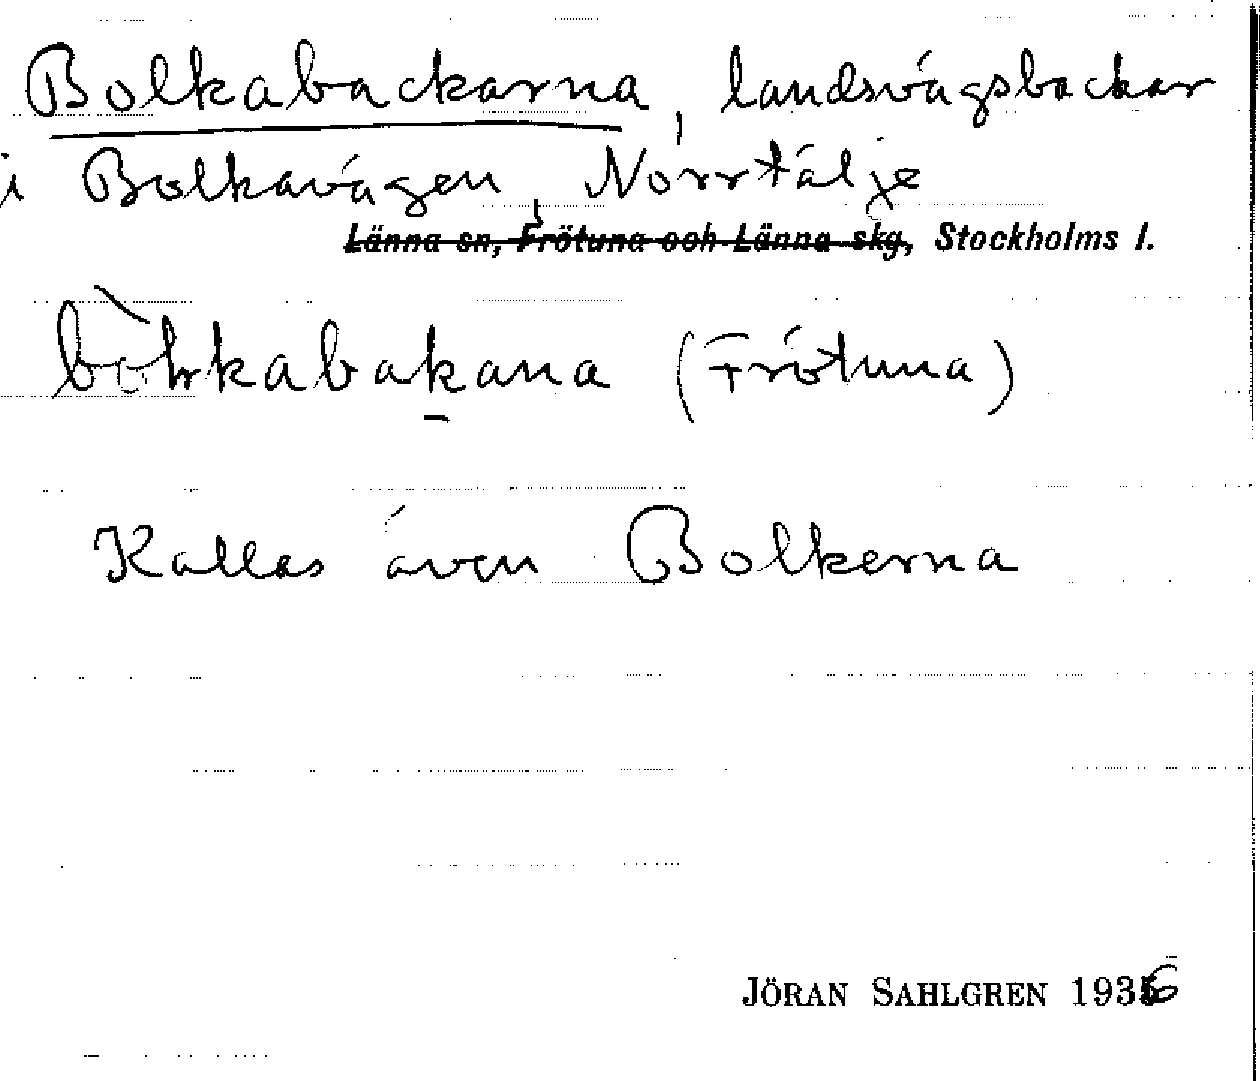 Bolkabackarna, landsvägsbackar
i Bolkavägen, Norrtälje
Länna sn, Frötuna och Länna skg, Stockholms l.
(Frötuna)
Kallas även Bolkerna
JÖRAN SAHLGREN 1936